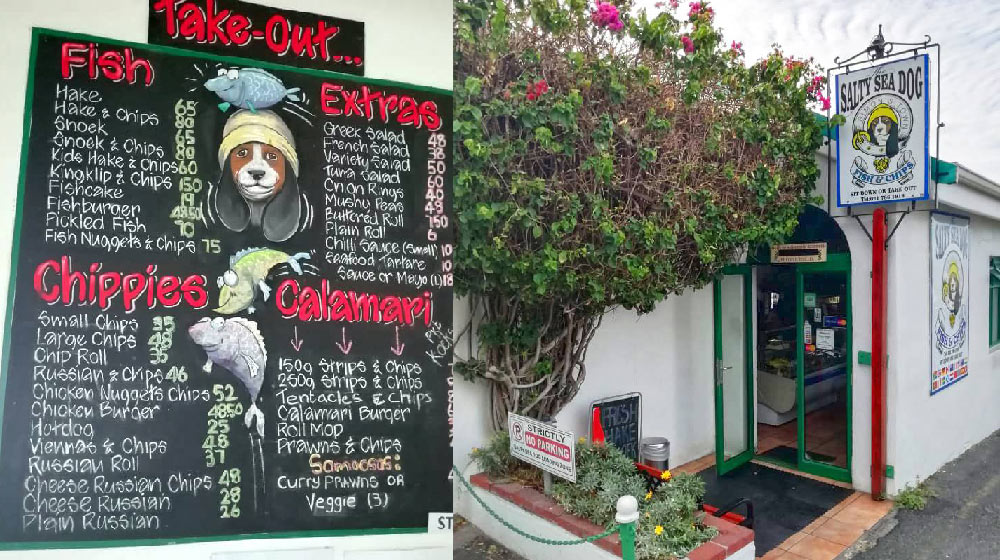 Take-Out...
Fish
Hake 65
Hake & Chips 80
Snoek 65
Snoek & Chips 80
Kids Hake & Chips 60
Kingklip & Chips 150
Fishcake 19
Fishburger 4850
Pickled Fish 70
Fish Nuggets & Chips 75
Chippies
Small Chips 35
Large Chips 48
Chip Roll 35
Russian & Chips 46
Chicken Nuggets Chips 52
Chicken Burger 4850
Hotdog 25
Viennas & Chips 48
Russian Roll 37
Cheese Russian Chips 48
Cheese Russian 28
Plain Russian 26
Extras
Greek Salad 48
French Salad
Variety Salad 50
Tuna Salad 60
Onion Rings
Mushy Peas
Buttered Roll
Plain Roll 6
Chilli Sauce (small) 10
Seafood Tartare 10
Sauce or Mayo (L) 18
Calamari
150g Strips & Chips
250g Strips & Chips
Tentacles & Chips
Calamari Burger
Roll Mop
Prawns & Chips
Samoosas:
Curry Prawns or
Veggie (3)
ST
The
SALTY SEA DOG
FISH & CHIPS
SIT DOWN OR TAKE OUT
SALTY SEA DOG
FISH & CHIPS
FRESH
HAKE
STRICTLY
NO PARKING